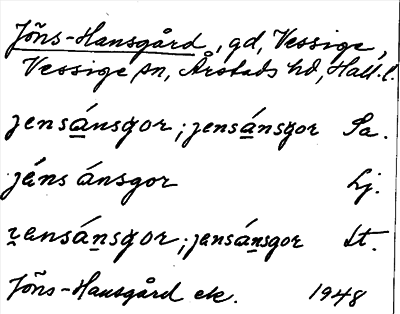 Jöns-Hansgård, gd, Vessige,
Vessige sn, Årstads hd, Hall. l.
jensánsgor; jensánsgor Sa.
jéns ánsgor Lj.
ɀensánsgor; jensánsgor Lt.
Jöns-Hansgård ek. 1948